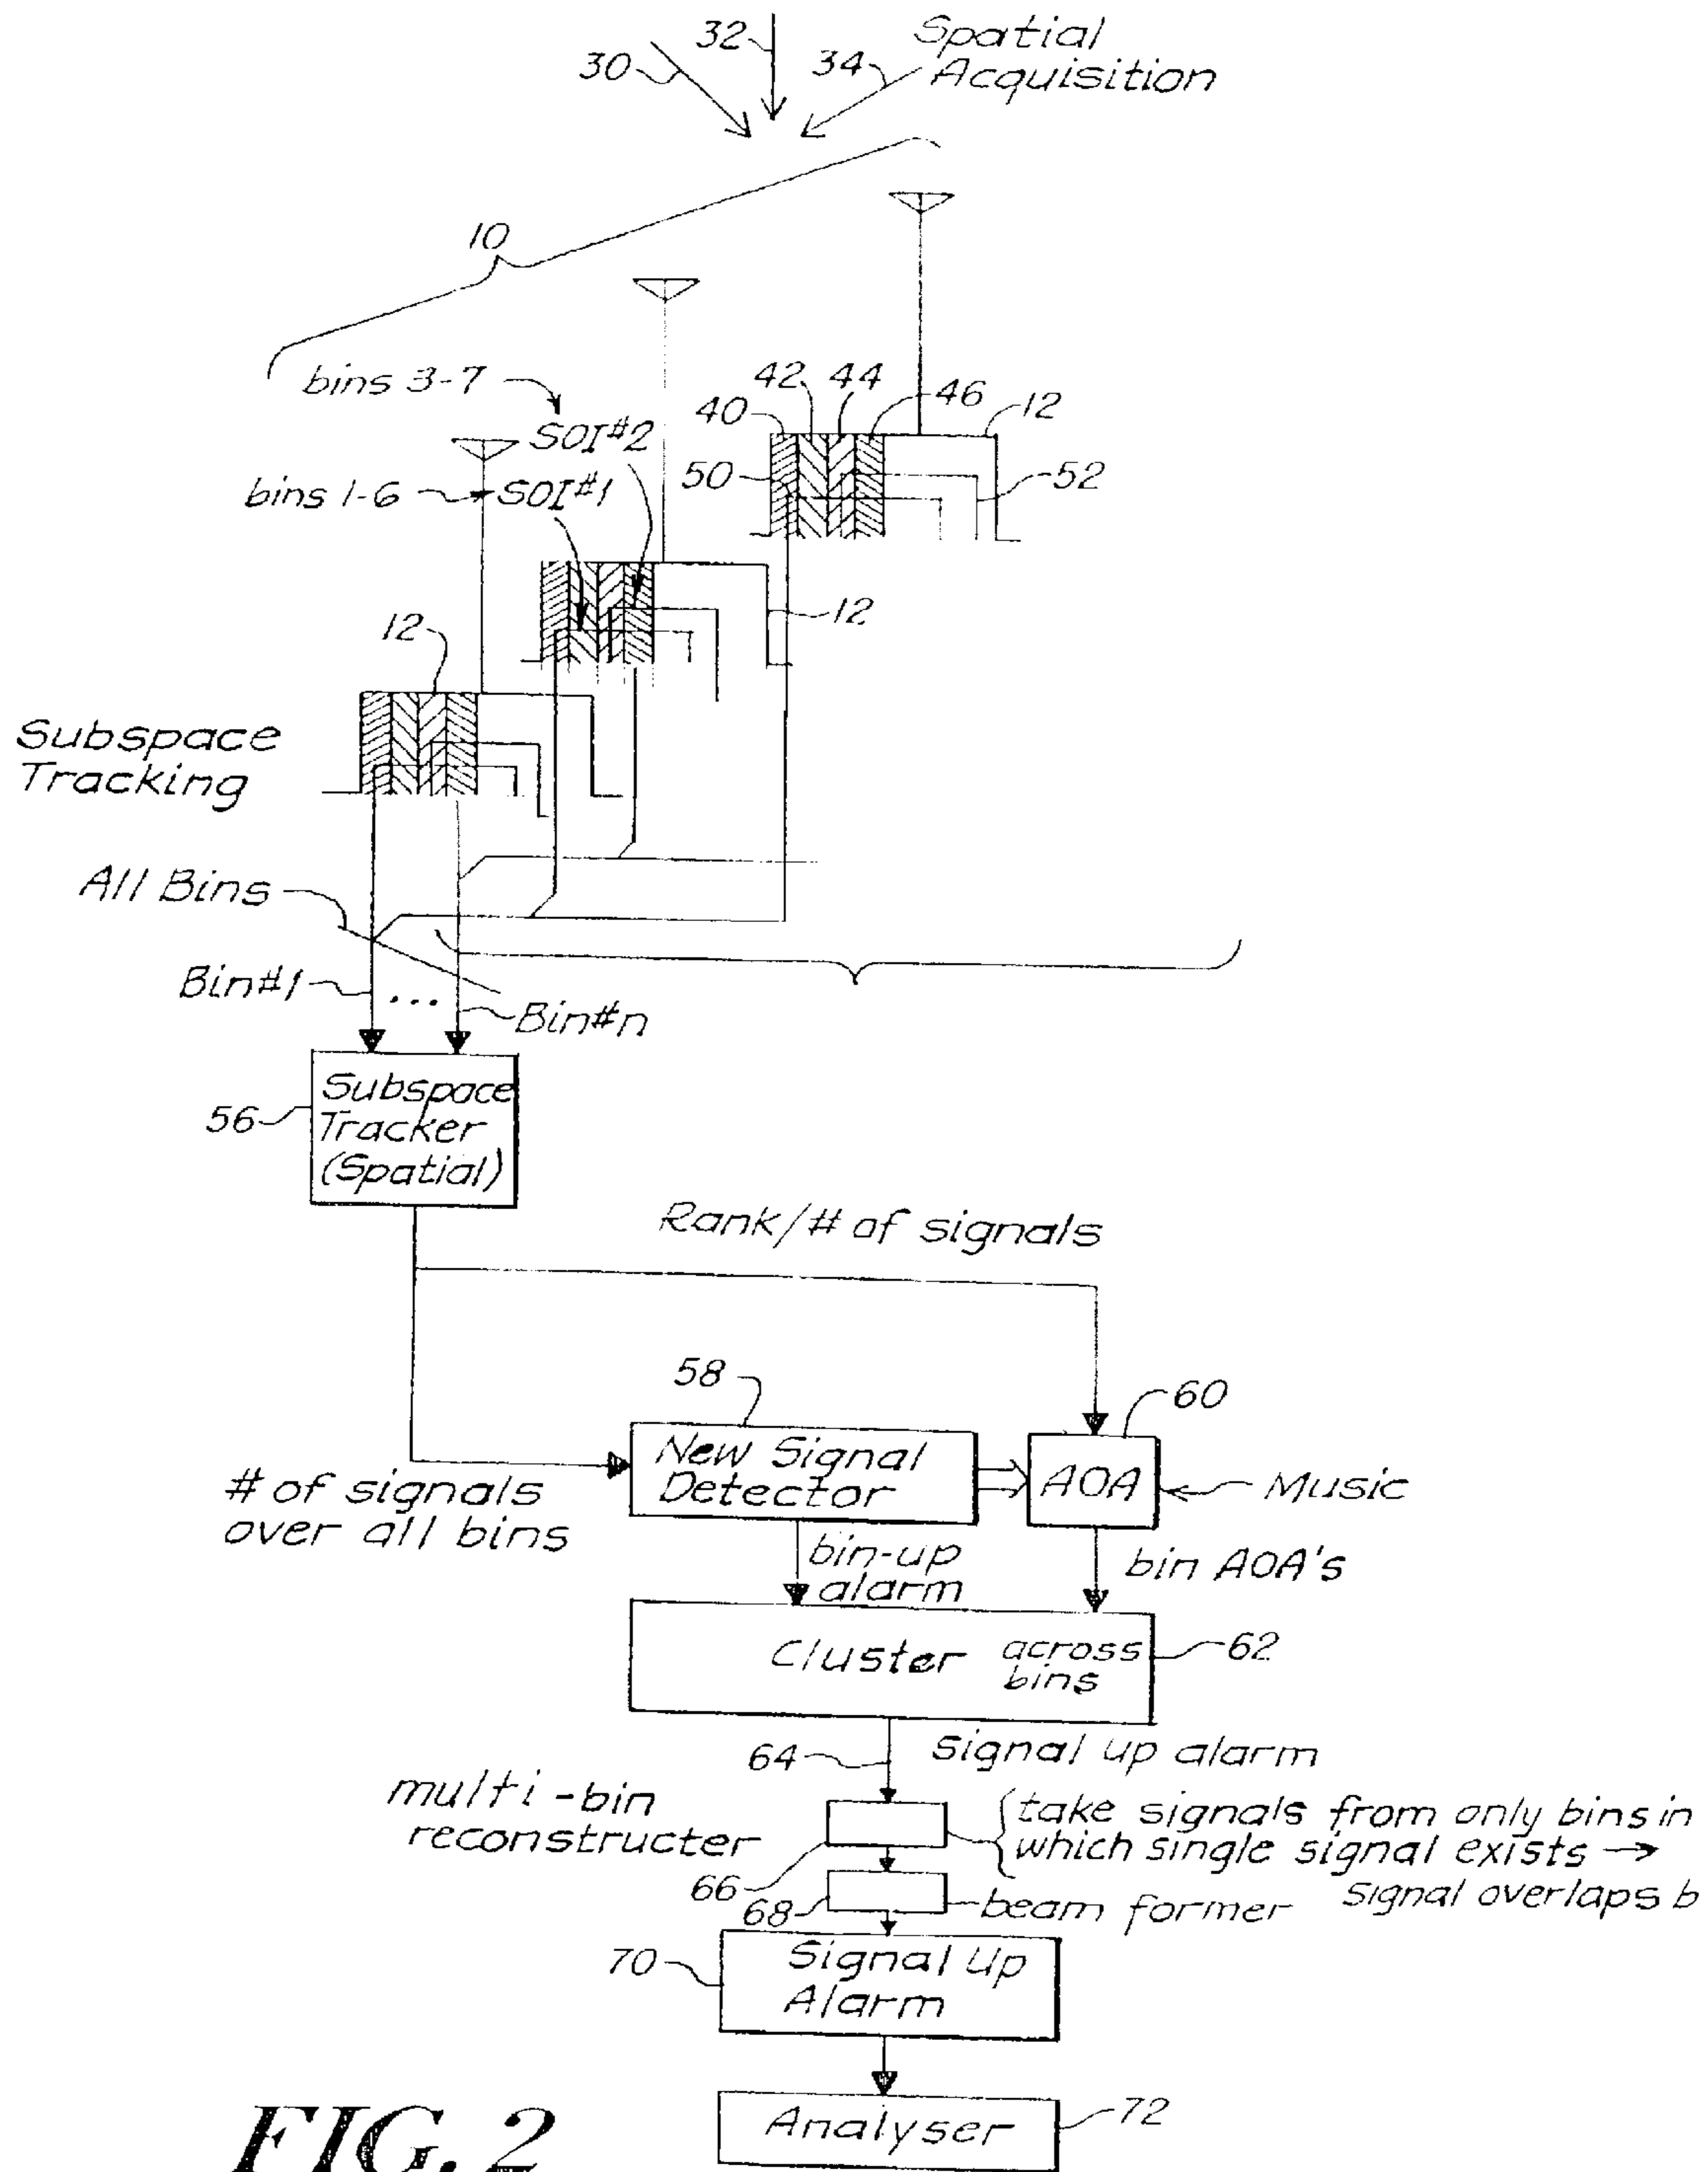 32
Spatial
Acquisition
30
34
10
bins 3-7
SOI#2
bins 1-6
SOI#1
42
44
46
40
12
50
52
12
12
Subspace
Tracking
All Bins
Bin#1
...
Bin#n
Subspace
Tracker
(Spatial)
56
Rank/# of signals
58
60
New Signal
Detector
AOA
Music
# of signals
over all bins
bin-up
alarm
bin AOA's
Cluster across
bins
62
64
signal up alarm
multi-bin
reconstructer
take signals from only bins in
which single signal exists →
signal overlaps b
66
68
beam former
70
Signal Up
Alarm
Analyser
72
FIG. 2